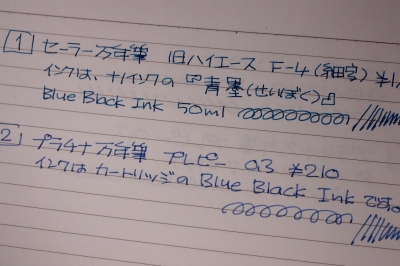 1 セーラー万年筆 旧ハイエース F-4(細字) ¥1,
インクは、ナノインクの『青墨(せいぼく)』
Blue Black Ink 50ml
2 プラチナ万年筆 プレピー 03 ¥210
インクは カートリッジの Blue Black Ink です。